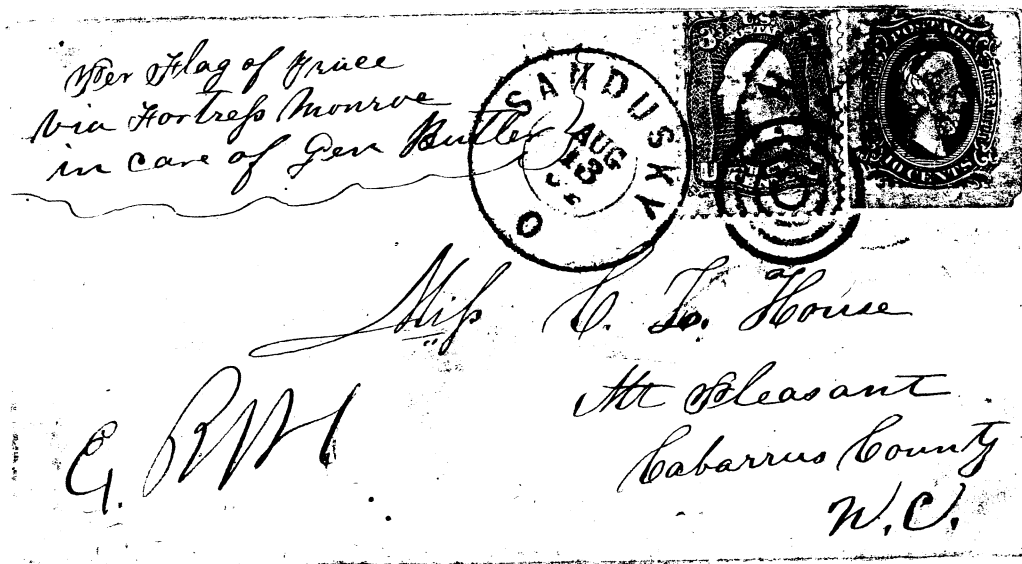 Per Flag of Truce
via Fortress Monroe
in care of Gen Butler
SANDUSKY
AUG
13
O
U
POSTAGE
10 CENTS
Miss C. L. House
Mt Pleasant
Cabarrus County
N. C.